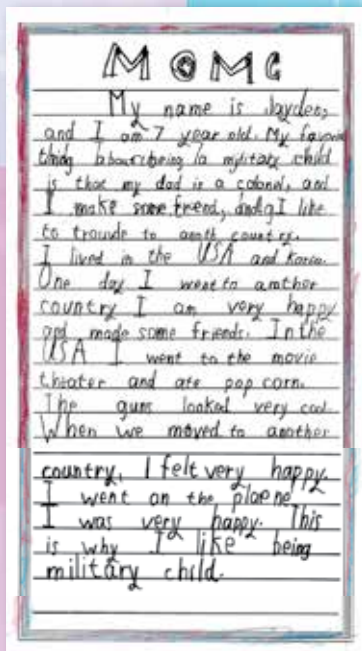 MOMC
My name is Jayden,
and I am 7 year old. My favorit
thing about being a military child
is that my dad is a colonel, and
I make some friend, and I like
to to anoth country.
I lived in the USA and Korea.
One day I went to another
country I am very happy
and made some friends. In the
USA I went to the movie
theater and ate pop corn.
The guns looked very cool.
When we moved to another
country, I felt very happy.
I went on the plaene
I was very happy. This
is why I like being
military child.